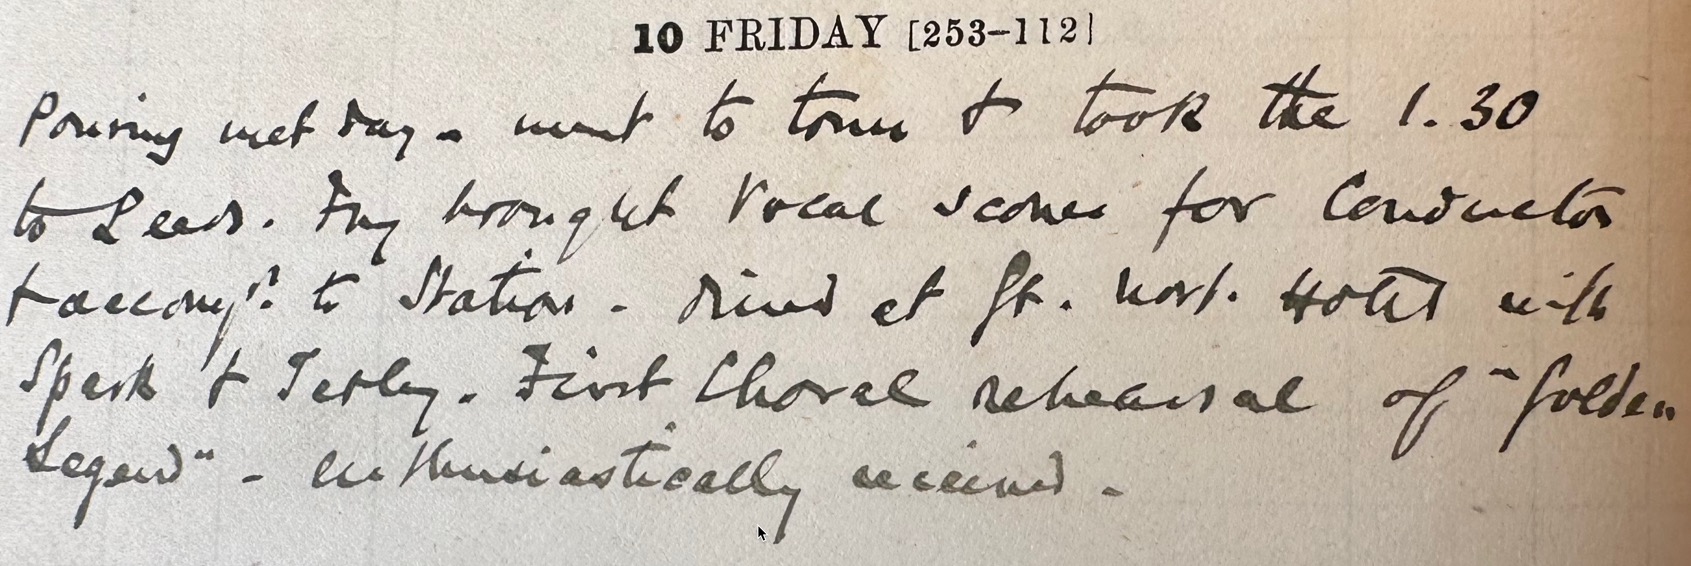 10 FRIDAY [253-112]
Pouring wet day - went to town & took the 1.30
to Leeds. Fry brought Vocal scores for Conductor
& accompt. to Station - dined at Gt. Nort. Hotel with
Spark & Tetley. First Choral rehearsal of "Golden
Legend" - enthusiastically received -